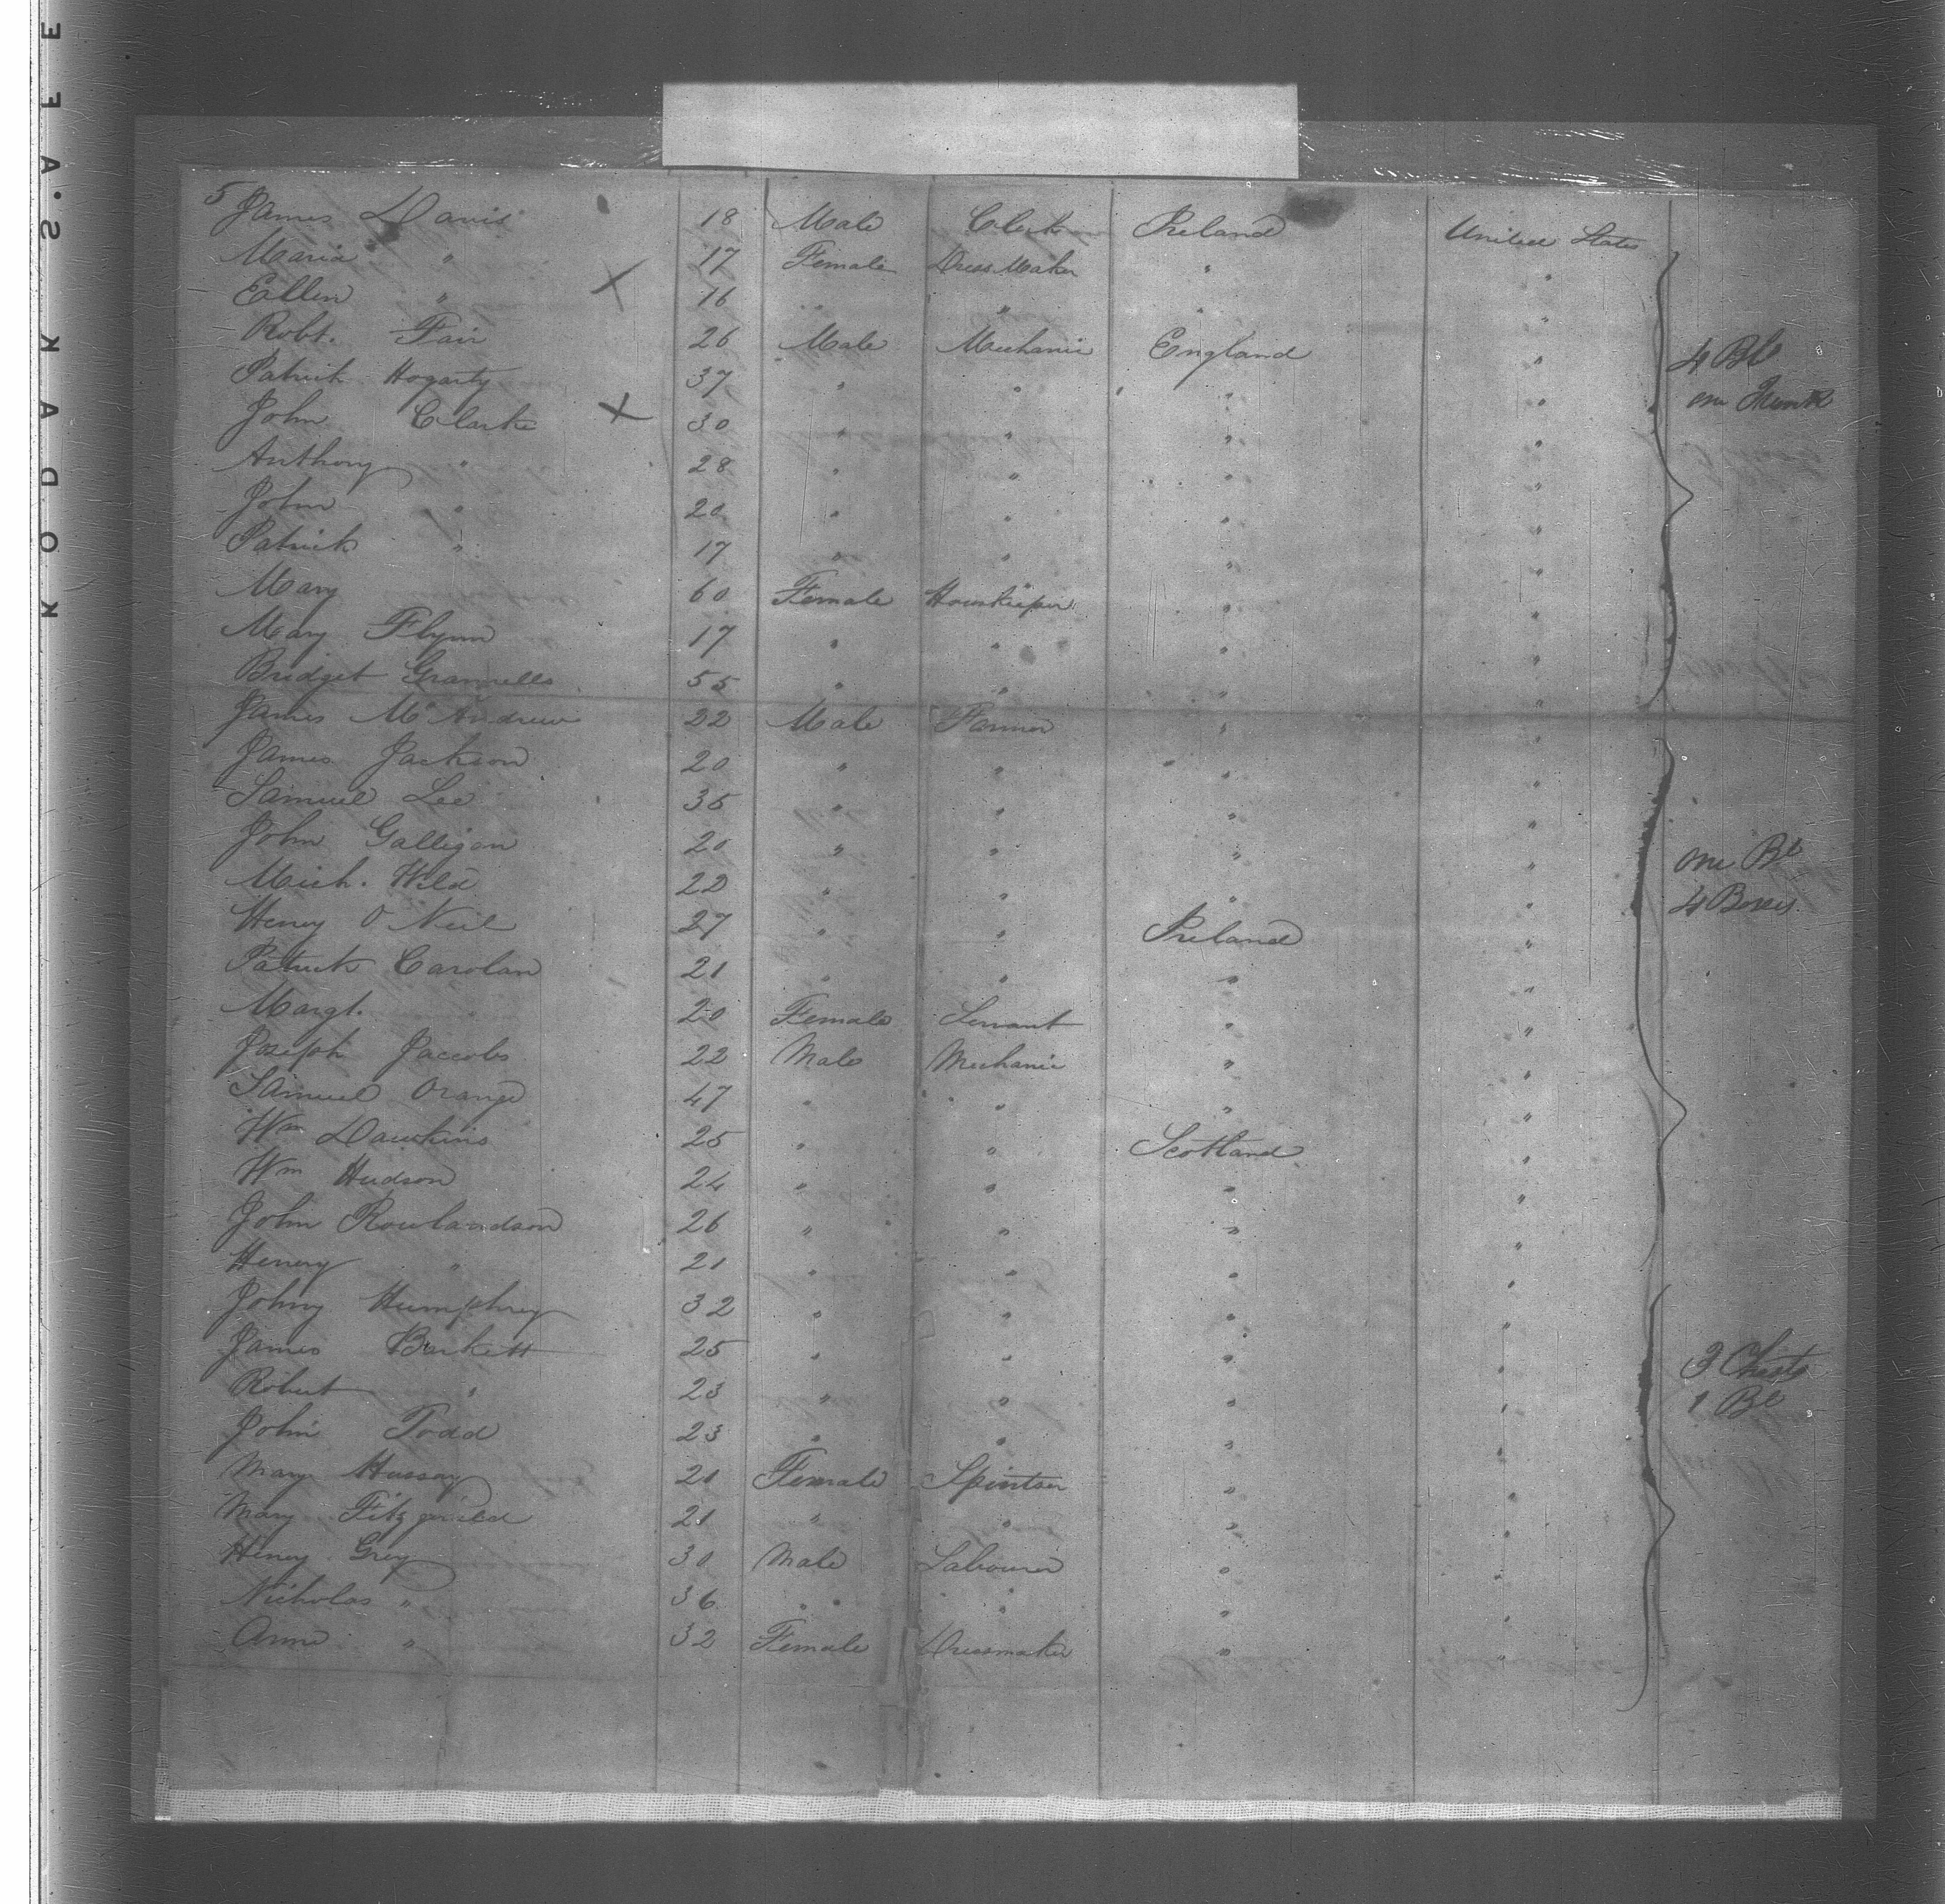 5 James Davis 18 Male Clerk Ireland United States
Maria " 17 Female Dress Maker " "
Eallen " X 16 " " " "
Robt. Fair 26 Male Mechanic England "
Patrick Hogarty 37 " " " "
John Clarke X 30 " " " "
Anthony " 28 " " " "
John " 20 " " " "
Patrick " 17 " " " "
Mary 60 Female Housekeeper " "
Mary Flynn 17 " " " "
Bridget Grannells 55 " " " "
James McAndrew 22 Male Farmer " "
James Jackson 20 " " " "
Samuel Lee 35 " " " "
John Galligan 20 " " " "
Mich. Wild 22 " " " "
Henry O Neil 27 " " Ireland "
Patrick Carolan 21 " " " "
Margt. 20 Female Servant " "
Joseph Jaccobs 22 Male Mechanic " "
Samuel Orange 47 " " " "
Wm Dawkins 25 " " Scotland "
Wm Hudson 24 " " " "
John Rowlandson 26 " " " "
Henery " 21 " " " "
Johny Humphrey 32 " " " "
James Barkett 25 " " " "
Robert " 23 " " " "
John Todd 23 " " " "
Mary Hussay 20 Female Spintser " "
Mary Fitzgerild 21 " " " "
Heney Grey 30 Male Labourer " "
Nicholas " 36 " " " "
Anne " 32 Female Dressmaker " "
4 Bls
one Trunk
One Bl
4 Boxes
3 Chests
1 Bl
KODAK S.A.F.E.